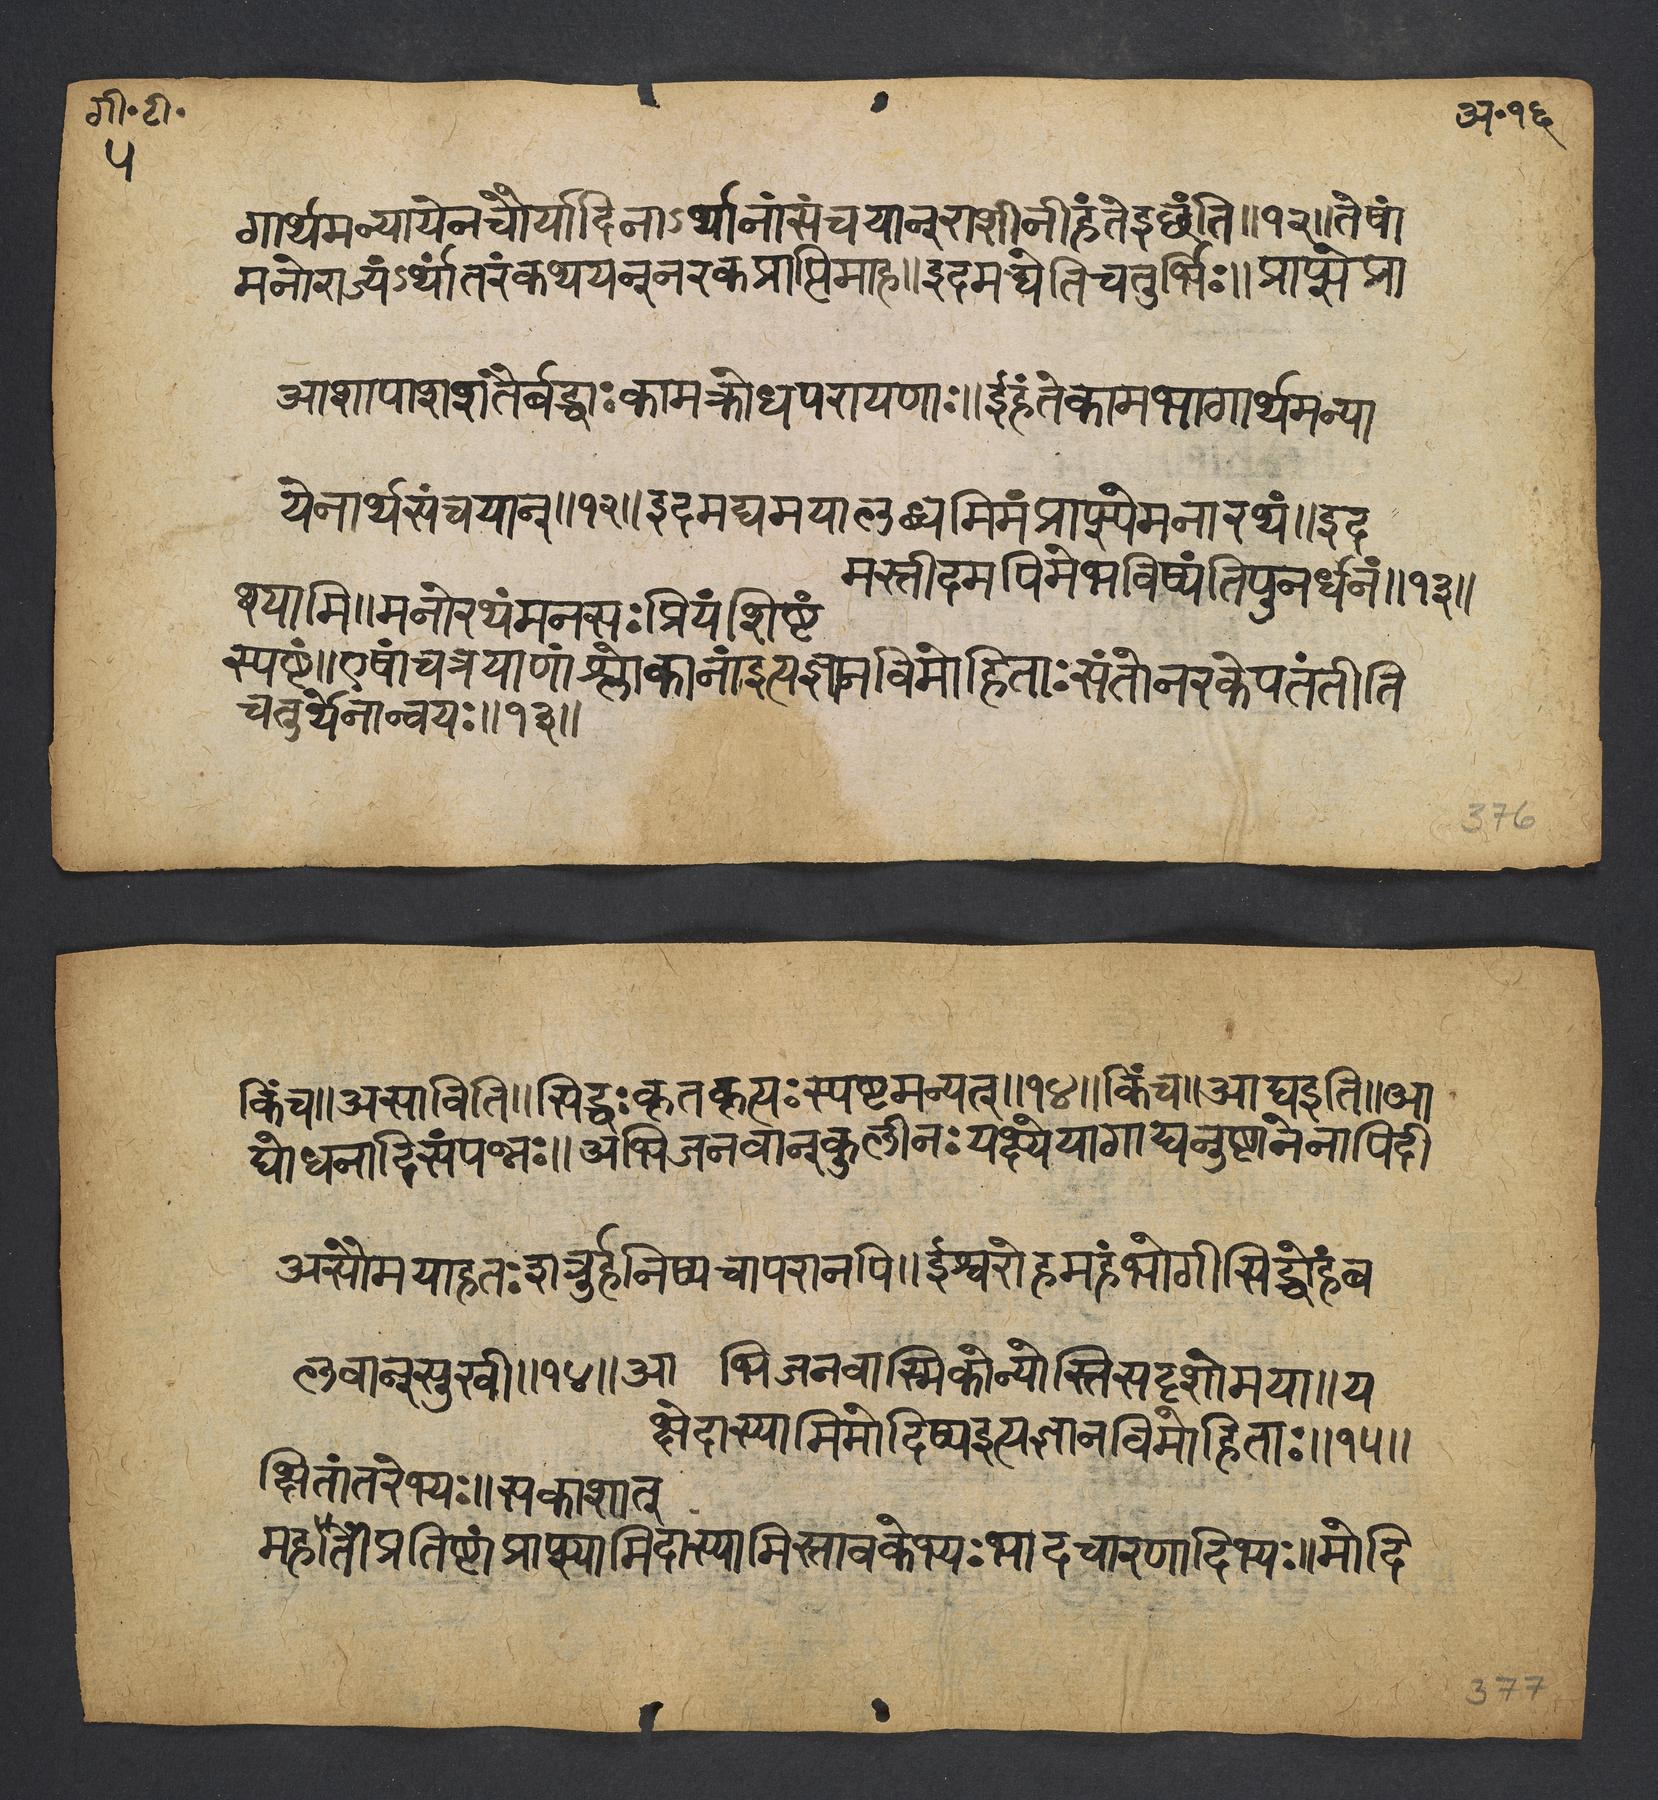 गी॰टी॰
अ॰१६
५
गार्थमन्यायेनचौर्यादिनाऽर्थानांसंचयान्राशीनीहंतेइछंति॥१२॥तेषां
मनोराज्यंऽर्थांतरंकथयन्नरकप्राप्तिमाह॥इदमद्येतिचतुर्भिः॥प्राप्से प्रा
आशापाशशतैर्बद्धाःकामक्रोधपरायणाः॥ईहंतेकामभोगार्थमन्या
येनार्थसंचयान्॥१२॥इदमद्यमयालब्धमिमंप्राप्स्येमनोरथं॥इद
मस्तीदमपिमेभविष्यंतिपुनर्धनं॥१३॥
थयामि॥मनोरथंमनसःप्रियंशिष्टं
स्पष्टं॥एषांचत्रयाणांश्लोकानांइत्यज्ञानविमोहिताःसंतोनरकेपतंतीति
चतुर्थेनान्वयः॥१३॥
376
किंच॥असाविति॥सिद्धःकृतकृत्यःस्पष्टमन्यत्॥१४॥किंच॥आद्यइति॥आ
द्योधनादिसंपन्नः॥अभिजनवान्कुलीनःयक्ष्येयागाद्यनुष्टानेनापिदी
असौमयाहतःशत्रुर्हनिष्यचापरानपि॥ईश्वरोहमहंभोगीसिद्धोहंब
लवान्सुखी॥१४॥आ भिजनवास्मिकोन्योस्तिसदृशोमया॥य
क्षेदास्यामिमोदिष्यइत्यज्ञानविमोहिताः॥१५॥
क्षितांतरेभ्यः॥सकाशात्
महतींप्रतिष्टांप्राप्स्यामिदास्यामिस्तावकेभ्यःभादचारणादिभ्यः॥मोदि
377